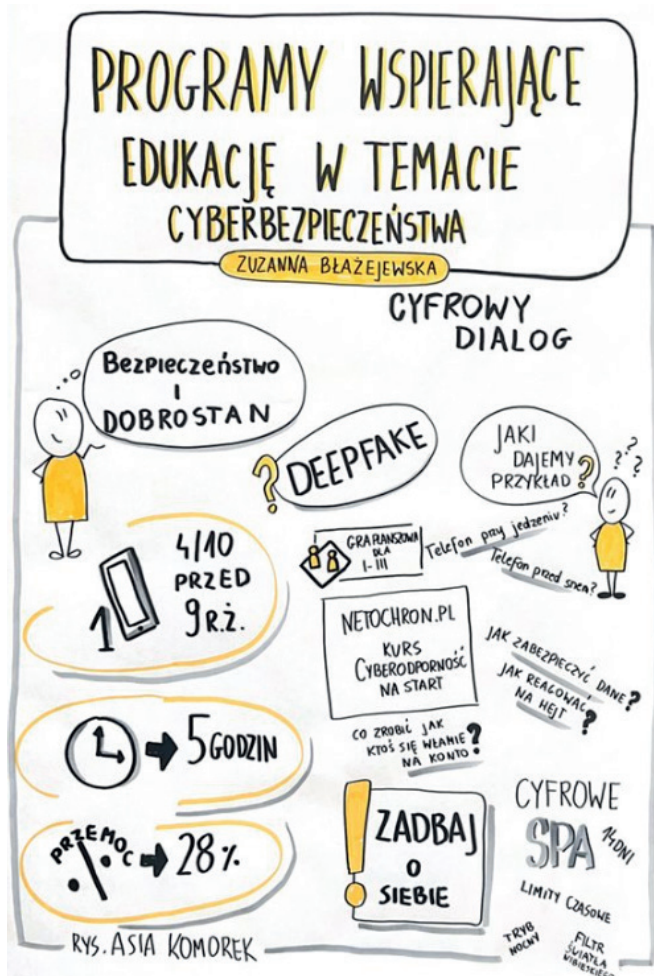 PROGRAMY WSPIERAJĄCE
EDUKACJĘ W TEMACIE
CYBERBEZPIECZEŃSTWA
ZUZANNA BŁAŻEJEWSKA
CYFROWY
DIALOG
BEZPIECZEŃSTWO
I
DOBROSTAN
? DEEPFAKE
JAKI
DAJEMY
PRZYKŁAD?
???
1
4/10
PRZED
9 R.Ż.
GRA PLANSZOWA
DLA
I-III
Telefon przy jedzeniu?
Telefon przed snem?
NETOCHRON.PL
KURS
CYBERODPORNOŚĆ
NA START
JAK ZABEZPIECZYĆ DANE?
JAK REAGOWAĆ
NA HEJT?
5 GODZIN
CO ZROBIĆ JAK
KTOŚ SIĘ WŁAMIE
NA KONTO?
PRZEMOC
% 28%
! ZADBAJ
O
SIEBIE
CYFROWE
SPA 14 DNI
LIMITY CZASOWE
TRYB
NOCNY
FILTR
ŚWIATŁA
RYS. ASIA KOMOREK